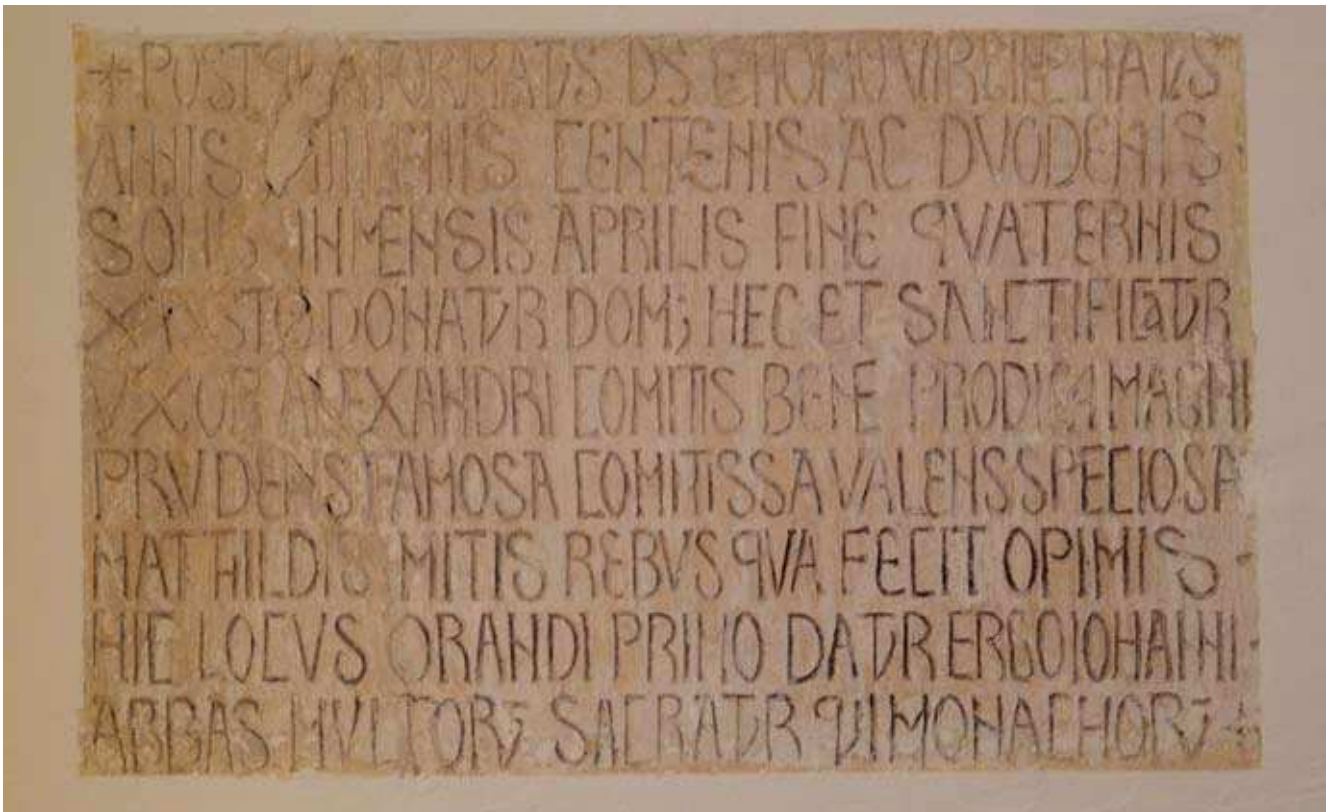 + POSTQUA FORMATUS DS E HOMO VIRGINE NATUS
ANNIS MILLENIS CENTENIS AC DVODENIS
SOLIS IN MENSIS APRILIS FINE QVATERNIS
XPISTO DONATUR DOM; HEC ET SANCTIFICATUR
VXOR ALEXANDRI COMITIS BENE PRODIGA MAGNI
PRVDENS FAMOSA COMITISSA VALENS SPECIOSA
MATHILDIS MITIS REBVS QVA FECIT OPIMIS
HIC LOCVS ORANDI PRIMO DATUR ERGO IOHANNI
ABBAS MVLTORŪ SACRATUR QUI MONACHORŪ +